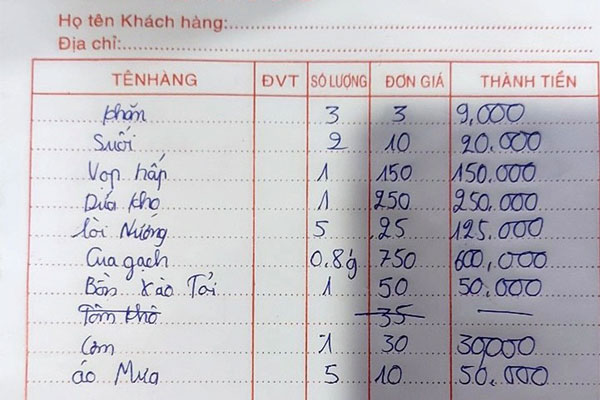 Họ tên Khách hàng:
Địa chỉ:
TÊNHÀNG ĐVT SỐ LƯỢNG ĐƠN GIÁ THÀNH TIỀN
khăn 3 3 9,000
Suối 2 10 20.000
Vọp hấp 1 150 150.000
Dứa kho 1 250 250.000
lòi Nướng 5 25 125.000
Cua gạch 0.8 750 600,000
Bồn Xào Tỏi 1 50 50.000
Tôm khô 35
Cơm 1 30 30,000
áo Mưa 5 10 50.000